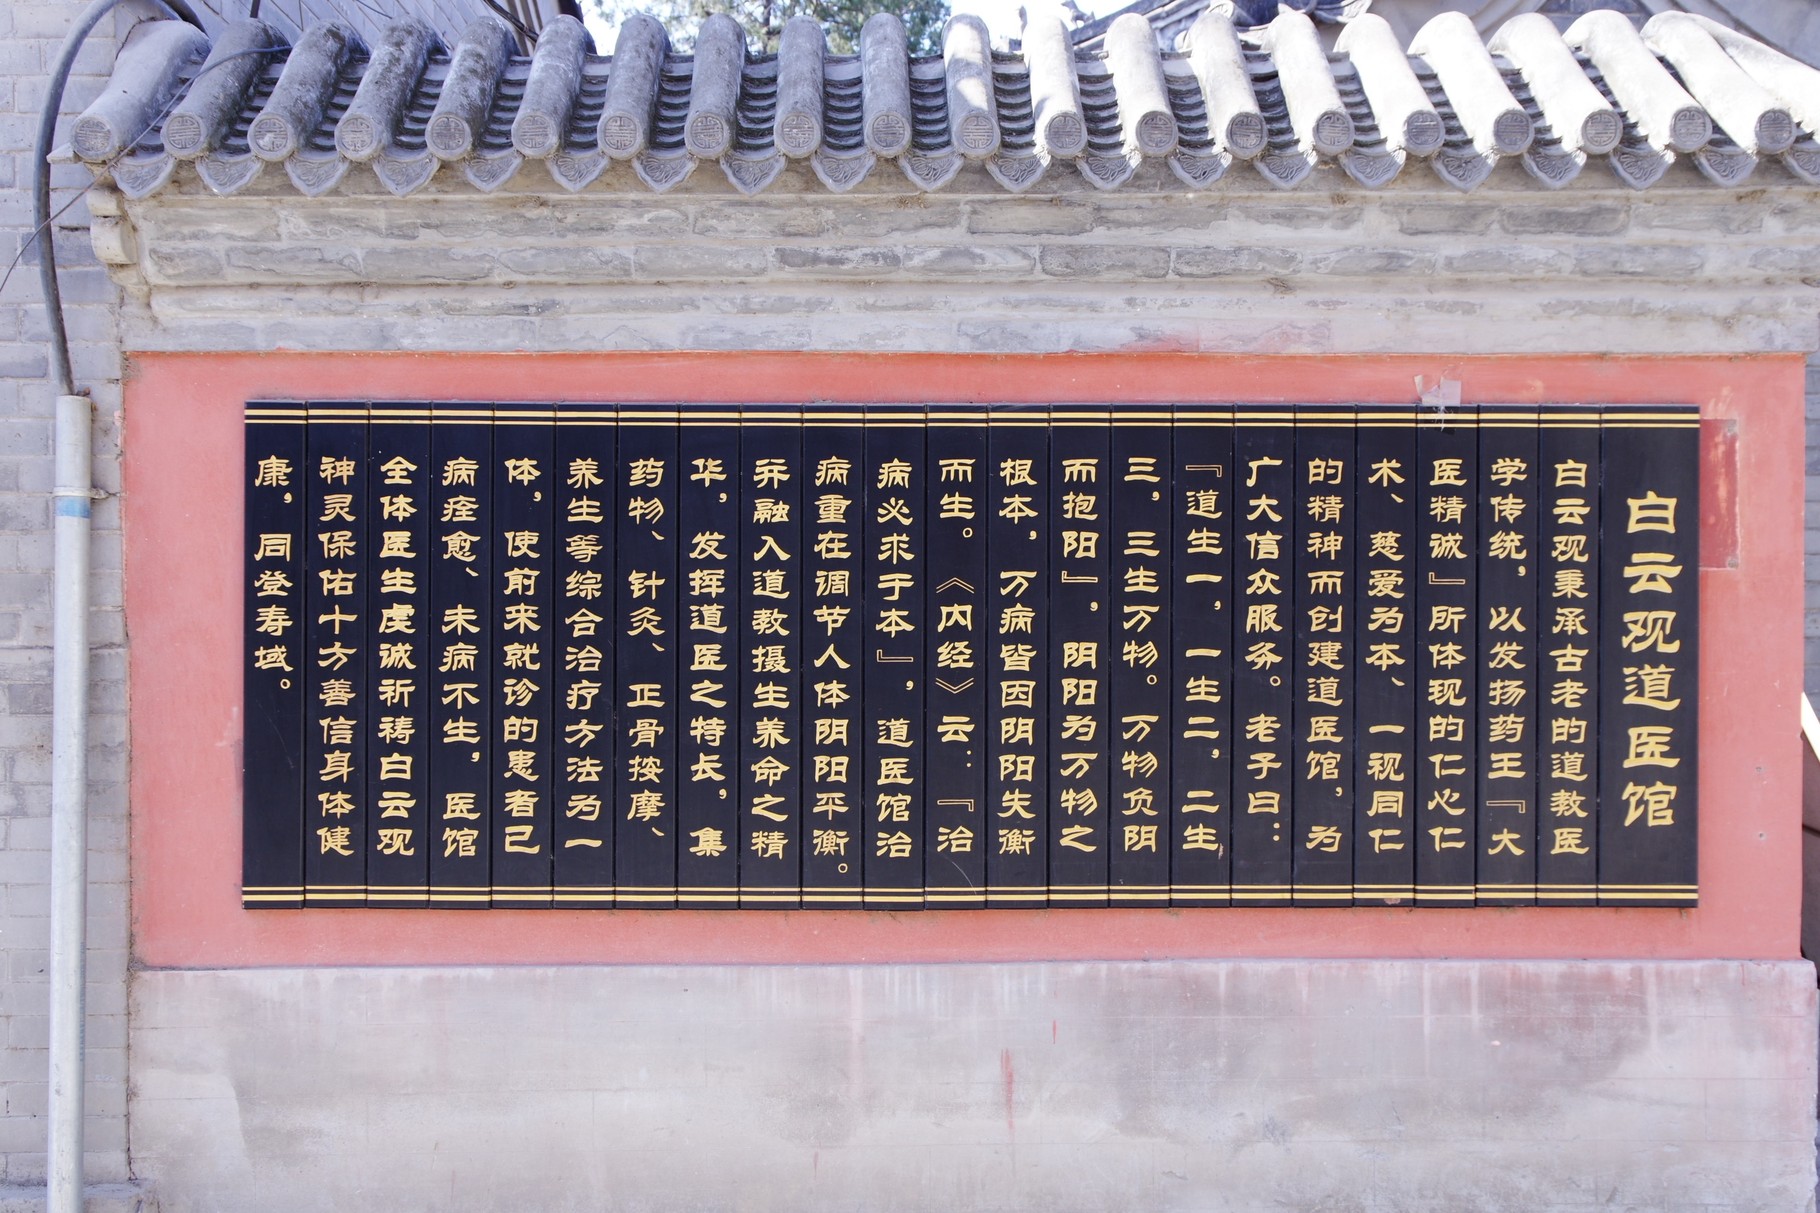 白云观道医馆
白云观秉承古老的道教医
学传统，以发扬药王『大
医精诚』所体现的仁心仁
术、慈爱为本、一视同仁
的精神而创建道医馆，为
广大信众服务。老子曰：
『道生一，一生二，二生
三，三生万物。万物负阴
而抱阳』，阴阳为万物之
根本，万病皆因阴阳失衡
而生。《内经》云：『治
病必求于本』，道医馆治
病重在调节人体阴阳平衡。
并融入道教摄生养命之精
华，发挥道医之特长，集
药物、针灸、正骨按摩、
养生等综合治疗方法为一
体，使前来就诊的患者已
病痊愈、未病不生，医馆
全体医生虔诚祈祷白云观
神灵保佑十方善信身体健
康，同登寿域。